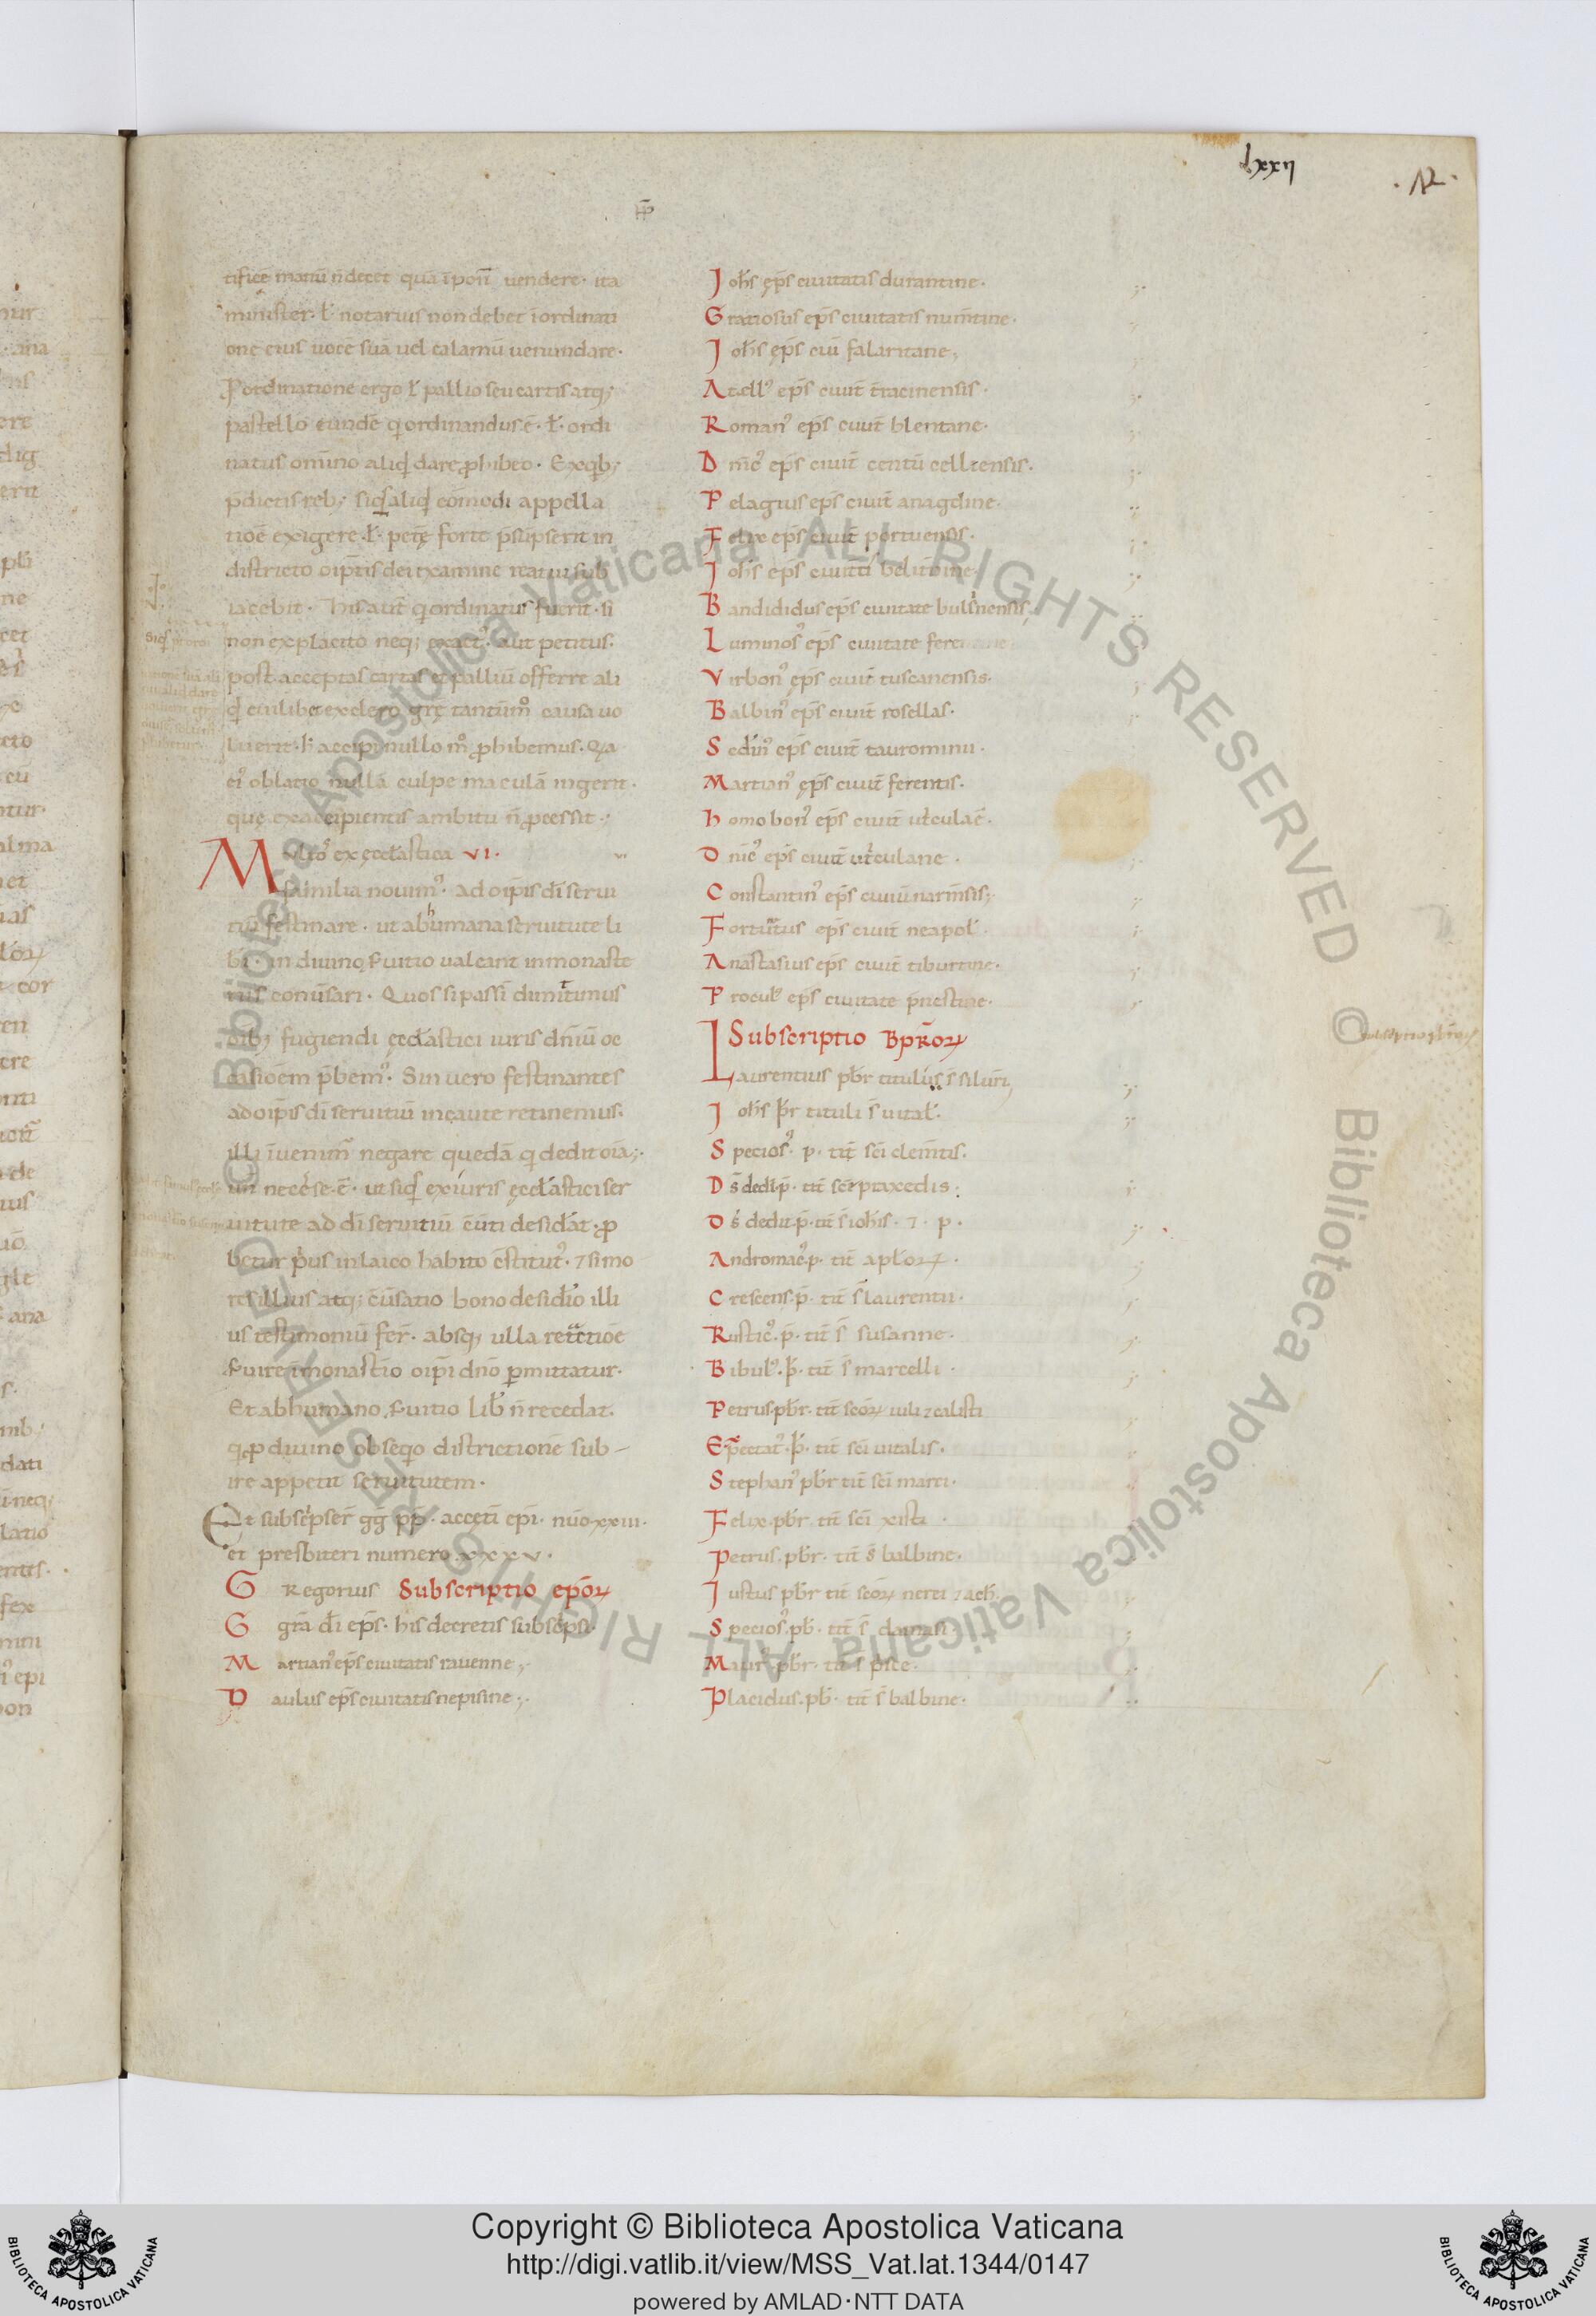 lxxii
12
tificē manū n̄ decet quā īponit uendere· ita
minister· ł notarius non debet ī ordinati
one eius uocē suā uel calamū uenundare·
Pordinatione ergo ł pallio seu cartis atq;
pastello eundē q̇ ordinandus ē· ł· ordi
natus omīno aliq̇d dare ꝓhibeo· Ex q̇b;
p̄dictis reb; siq̇s aliq̇d cōmodi appella
tiōe exigere· ł· petę forte p̄sūpserit in
districto oīp̄tis dei examine reatui sub
iacebit· His aut̄ q̇ ordinatus fuerit· si
non ex placito neq; exact᾽· aut petitus·
post acceptas cartas et palliū offerre ali
q̇d cuilibet ex clero grę tantūm° causa uo
luerit· h̄ accipi nullo m° ꝓhibemus· Q̇a
ei᾽ oblatio nullā culpe maculā ingerit·
quę ex accipientis ambitu n̄ ꝓcessit·;
Multo᾽ ex ęccłastica VI·
familia nouim᾽· ad oīp̄is dī serui
tiū festinare· ut ab humana seruitute li
b̄i· in diuino ẜuitio ualeant in monaste
riis conūsari· Quos si passī dimittimus
oīb; fugiendi ęccłastici iuris dn̄iū oc
casiōem p̄bem᾽· Sin uero festinantes
ad oīp̄is dī seruitiū incaute retinemus·
illi īuenimr̄ negare quedā q̇ dedit oīa;·
un̄ necēse· ē· ut siq̇s ex iuris ęccłastici ser
uitute ad dī seruitiū c̄uti desidāt· ꝓ
betur p̄us in laico habito c̄stitut᾽· ⁊ si mo
res illius atq; c̄ūsatio bono desidīo illi
us testimoniū fer̄· absq; ulla retētiōe
ẜuire ī monastīo oīp̄i dn̄o ꝑmittatur·
Et ab humano ẜuitio lib᾽ n̄ recedat·
q̇ ꝓ diuino obseq̇o districtionē sub-
ire appetit seruitutem·
Et subscp̄ser̄ gḡ pp̄· acceti epī· nūo xxiii·
et presbiteri numero xxxv·
GRegorius Subscriptio epōꝝ
G gr̄a dī ep̄s· his decretis subscp̄si·
Martian᾽ ep̄s ciuitatis rauenne;·
Paulus ep̄s ciuitatis nepisine;·
Ioh̄s ęp̄s ciuitatis durantine·
Gratiosus ep̄s ciuitatis num̄tine·
Ioh̄s ęp̄s ciū falaritane;
Atell᾽ ep̄s ciuit̄ t̄racinensis·
Roman᾽ ep̄s ciuit̄ blentane·
Dnīc᾽ ep̄s ciuit̄ centū cellensis·
Pelagius ep̄s ciuit̄ anagdine·
Felix ep̄s ciuit̄ portuensis·
Ioh̄s ep̄s ciuitti belitūine·
Bandididus ep̄s ciuitate bulsinensis;
Luminos᾽ ep̄s ciuitate
Virbon᾽ ęp̄s ciuit̄ tuscanensis·
Balbin᾽ ep̄s ciuit̄ rosellas·
Sed᾽in᾽ ep̄s ciuit̄ taurominii·
Martian᾽ ęp̄s ciuit̄ ferentis·
Homobon᾽ ep̄s ciuit̄ ut̄culac̄·
Dnīc᾽ ep̄s ciuit̄ ut̄culane·
Constantin᾽ ep̄s ciuiū narin̄sis;·
Fortuātus ep̄s ciuit̄ neapol̄·
Anastasius ep̄s ciuit̄ tiburtine·
Procul᾽ ep̄s ciuitate p̄nestine·
Subscriptio Bp̄Roꝝ
Laurentius pb̄r titulus s̄ silūri;
Ioh̄s p̄r tituli s̄ uital̄·
Specios᾽· p· tit̄ sc̄i clem̄tis·
Ds̄ dedi· p̄· tit̄ scē praxedis·
Ds̄ dedit· p̄· tit̄ s̄ ioh̄is· ⁊· p·
Andromac᾽· p· tit̄ apłoꝝ·
Crescens· p̄· tit̄ s̄ laurentii·
Rustic᾽· p̄· tit̄ s̄ susanne·
Bibul᾽· p̄· tit̄ s̄ marcelli·
Petrus· pb̄r· tit̄ scōꝝ iulii ⁊ calisti
Ep̄ectat᾽· p̄· tit̄ sc̄i uitalis·
Stephan᾽ pb̄r tit̄ sc̄i marci·
Felix· pb̄r tit̄ sc̄i xisti·
Petrus· pb̄r· tit̄ s̄ balbine·
Iustus pb̄r tit̄ scōꝝ nerei ⁊ ach̄·
Specios᾽· pb̄· tit̄ s̄ damasi·
Maur᾽· pb̄r· tit̄ s̄ p̄sce·
Placidus· pb̄· tit̄ s̄ balbine·
© Biblioteca Apostolica Vaticana ALL RIGHTS RESERVED © Biblioteca Apostolica Vaticana ALL RIGHTS RESERVED
Copyright © Biblioteca Apostolica Vaticana
http://digi.vatlib.it/view/MSS_Vat.lat.1344/0147
powered by AMLAD·NTT DATA
BIBLIOTECA APOSTOLICA VATICANA
BIBLIOTECA APOSTOLICA VATICANA